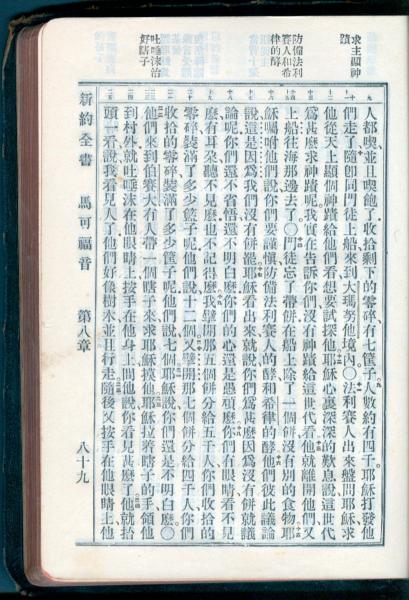 求主顯神
蹟
防備法利
賽人和希
律的酵
吐唾沫治
好瞎子
人都喫並且喫飽了收拾剩下的零碎有七筐子人數約有四千耶穌打發他
們走了隨卽同門徒上船來到大瑪努他境內〇法利賽人出來盤問耶穌求
他從天上顯個神蹟給他們看想要試探他耶穌心裏深深的歎息說這世代
爲甚麼求神蹟呢我實在告訴你們沒有神蹟給這世代看他就離開他們又
上船往海那邊去了〇門徒忘了帶餅在船上除了一個餅沒有別的食物耶
穌囑咐他們說你們要謹慎防備法利賽人的酵和希律的酵他們彼此議論
說這是因爲我們沒有餅罷耶穌看出來就說你們爲甚麼因爲沒有餅就議
論呢你們還不省悟還不明白麼你們的心還是愚頑麼你們有眼睛看不見
麼有耳朵聽不見麼也不記得麼我擘開那五個餅分給五千人你們收拾的
零碎裝滿了多少籃子呢他們說十二個又擘開那七個餅分給四千人你們
收拾的零碎裝滿了多少筐子呢他們說七個耶穌說你們還是不明白麼〇
他們來到伯賽大有人帶一個瞎子來求耶穌摸他耶穌拉着瞎子的手領他
到村外就吐唾沫在他眼睛上按手在他身上問他說你看見甚麼了他就抬
頭一看說我看見人了他們好像樹木並且行走隨後又按手在他眼睛上他
新約全書 馬可福音 第八章 八十九